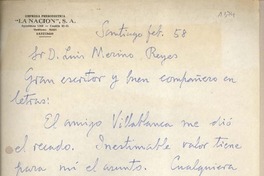 EMPRESA PERIODISTICA
"LA NACION", S. A.
SANTIAGO
Santiago feb. 58
Sr D. Luis Merino Reyes
Gran escritor y buen compañero en
letras:
El amigo Villablanca me dió
el recado. Inestimable valor tiene
para mí el asunto. Cualquiera